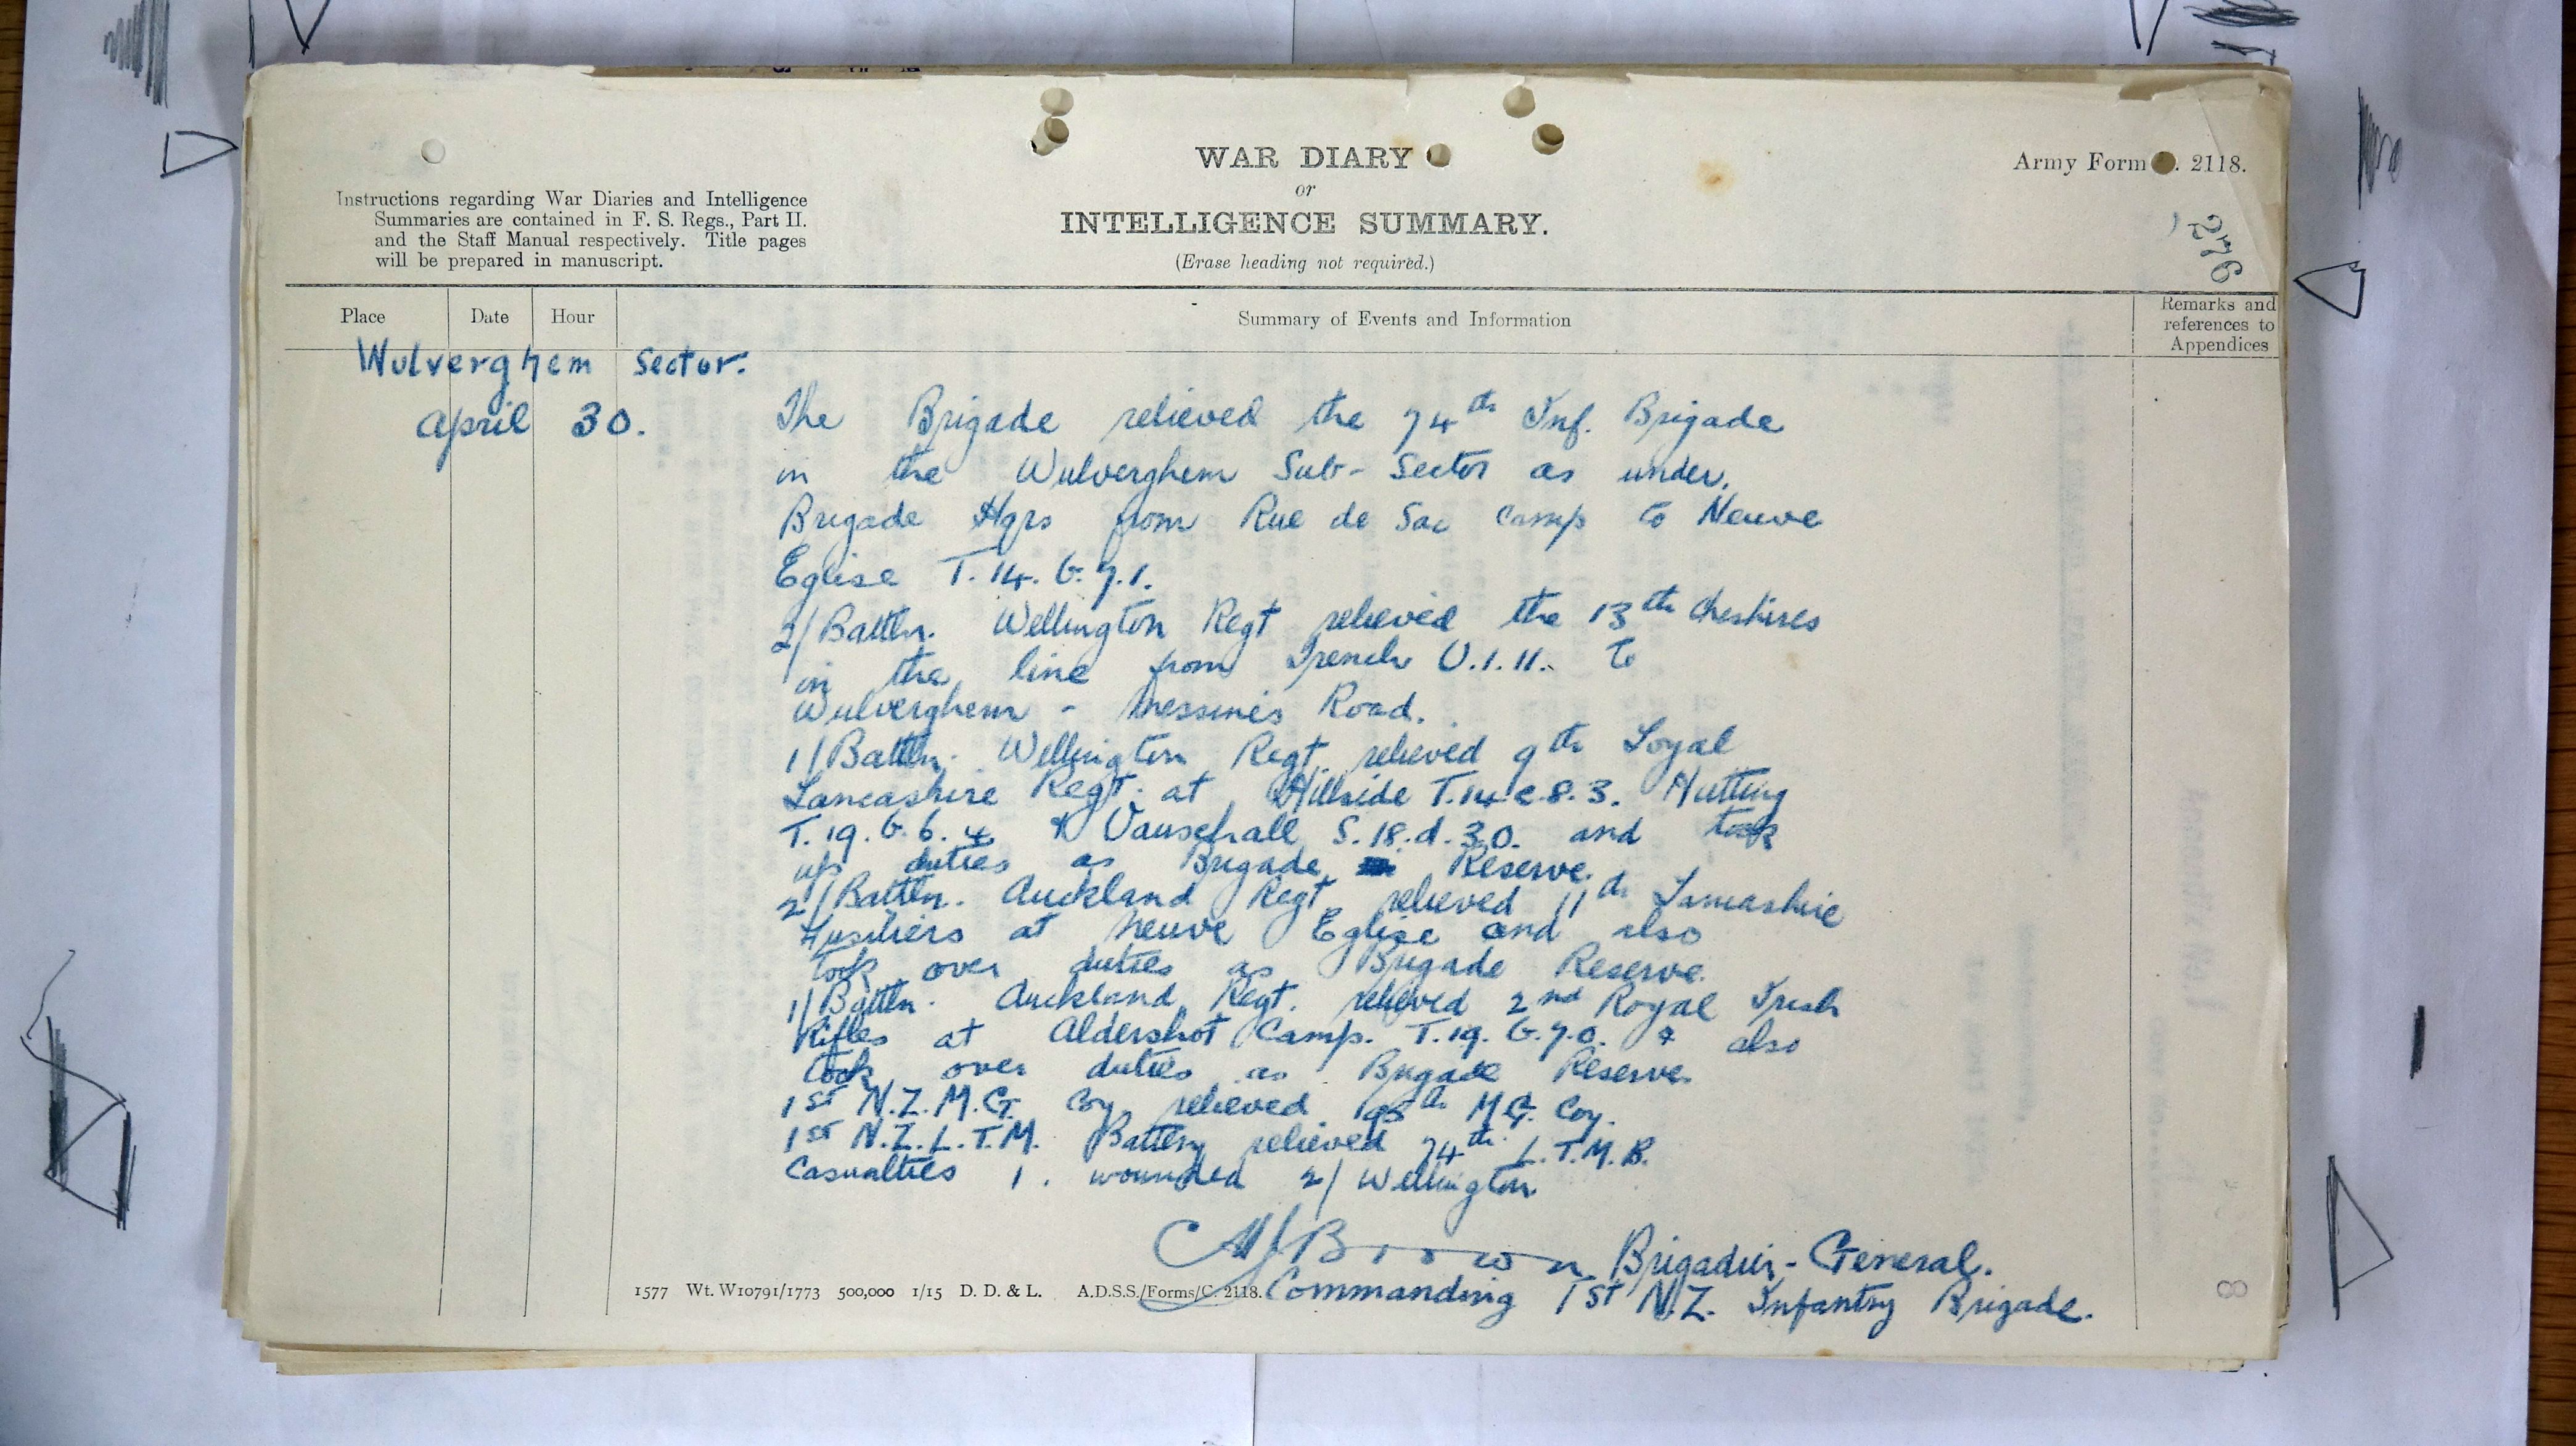 WAR DIARY
or
INTELLIGENCE SUMMARY.
(Erase heading not required.)
Army Form . 2118.
276
Instructions regarding War Diaries and Intelligence
Summaries are contained in F. S. Regs., Part II.
and the Staff Manual respectively. Title pages
will be prepared in manuscript.
Place Date Hour Summary of Events and Information Remarks and
references to
Appendices
Wulverghem Sector.
April 30.
The Brigade relieved the 74th Inf. Brigade
in the Wulverghem Sub-Sector as under.
Brigade Hqrs from Rue de Sac Camp to Neuve
Eglise T.14.b.7.1.
2/Battln. Wellington Regt relieved the 13th Cheshires
in the line from Trench U.1.11. to
Wulverghem - Messines Road.
1/Battln. Wellington Regt. relieved 9th Loyal
Lancashire Regt. at Hillside T.14.c.8.3. Hutting
T.19.b.6.4 & Vauxhall S.18.d.30. and took
up duties as Brigade Reserve.
2/Battln. Auckland Regt relieved 11th Lancashire
Fusiliers at Neuve Eglise and also
took over duties as Brigade Reserve.
1/Battln. Auckland Regt. relieved 2nd Royal Irish
Rifles at Aldershot Camp. T.19.b.7.0. & also
took over duties as Brigade Reserve
1st N.Z.M.G. Coy relieved 195th M.G. Coy.
1st N.Z.L.T.M. Battery relieved 74th L.T.M.B.
Casualties 1. wounded 2/Wellington.
Brown Brigadier-General.
Commanding 1st N.Z. Infantry Brigade.
1577 Wt. W10791/1773 500,000 1/15 D. D. & L. A.D.S.S./Forms/C. 2118.
8